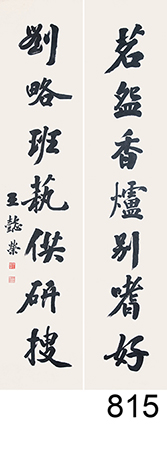 茗盌香爐別嗜好
劉略班藝供研搜
王懿榮
815